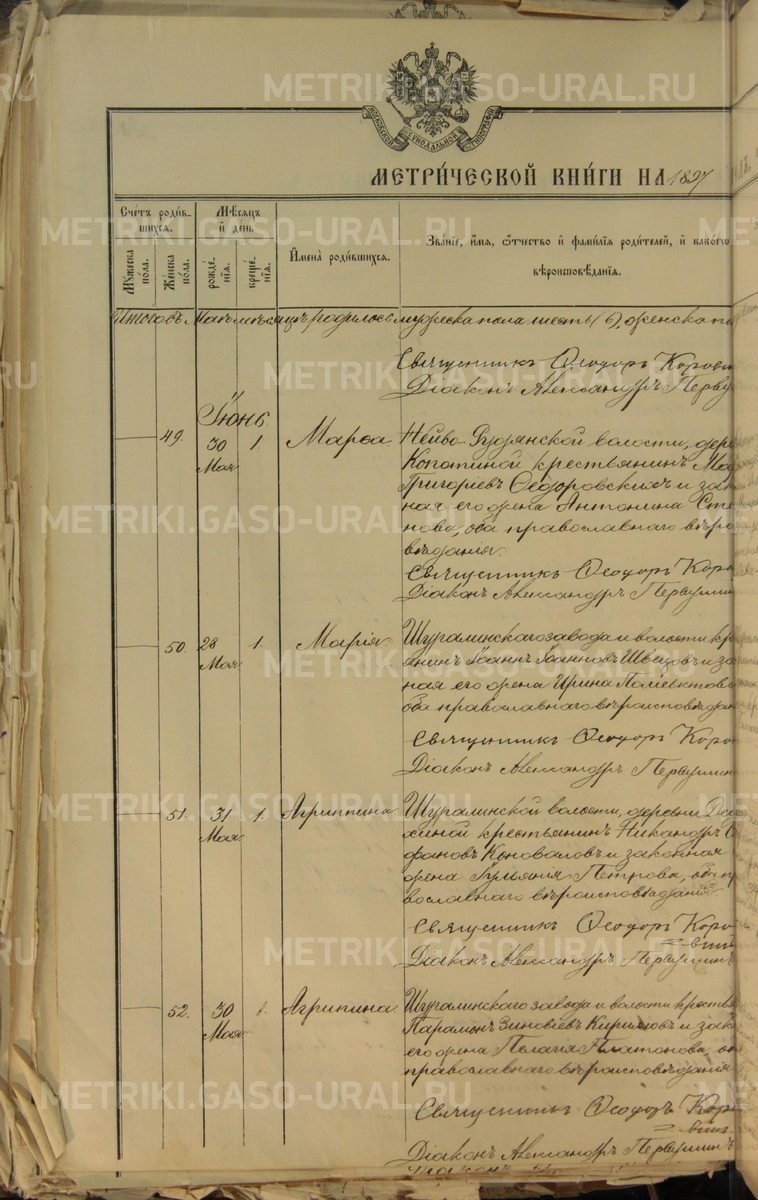 METRIKI.GASO-URAL.RU
МОСКОВСКОЙ СѴНОДАЛЬНОЙ ТИПОГРАФІИ
МЕТРИ́ЧЕСКОЙ КНИ́ГИ НА 1897
Счетъ роди́вшихся.
Мѣ́сяцъ и҆ де́нь
И҆мена̀ роди́вшихся.
Зва́нїе, и҆́мя, ѻ҆́тчество и҆ фами́лїя роди́телей, и҆ како́гѡ
вѣроисповѣ́данїя.
Мꙋ́жеска по́ла.
Же́нска по́ла.
рожде́нїѧ.
креще́нїѧ.
Итого въ Маѣ мѣсяцѣ родилось мужеска пола шесть (6), женска по
Священникъ Ѳеодоръ Коров
Діаконъ Александръ Перву
Іюнь
49. 30 Мая 1. Марѳа. Нейво-Рудянской волости, дере
крестьянинъ
Григорьевъ Ѳедоровскихъ и зак
ная его жена Антонина Сте
нова, оба православнаго вѣро
вѣданія.
Священникъ Ѳеодоръ Коро
Діаконъ Александръ Первушин
50. 28 Мая 1. Марія. Шуралинскаго завода и волости кре
янинъ Іоаннъ Іоанновъ Швецовъ и за
ная его жена Ирина Поліевктова
оба православнаго вѣроисповѣдан
Священникъ Ѳеодоръ Коро
Діаконъ Александръ Первушин
51. 31 Мая 1. Агриппина Шуралинской волости, деревни
хиной крестьянинъ Никандръ
фановъ Коноваловъ и законная
жена Іуліанія Петрова, оба пр
вославнаго вѣроисповѣданія.
Священникъ Ѳеодоръ Коро
=вин
Діаконъ Александръ Первушинъ
52. 30 Мая 1. Агрипина Шуралинскаго завода и волости крестья
Парамонъ Зиновіевъ Кирилловъ и зак
его жена Пелагія Платонова, об
православнаго вѣроисповѣданія
Священникъ Ѳеодоръ Кор
=вин
Діаконъ Александръ Первушинъ